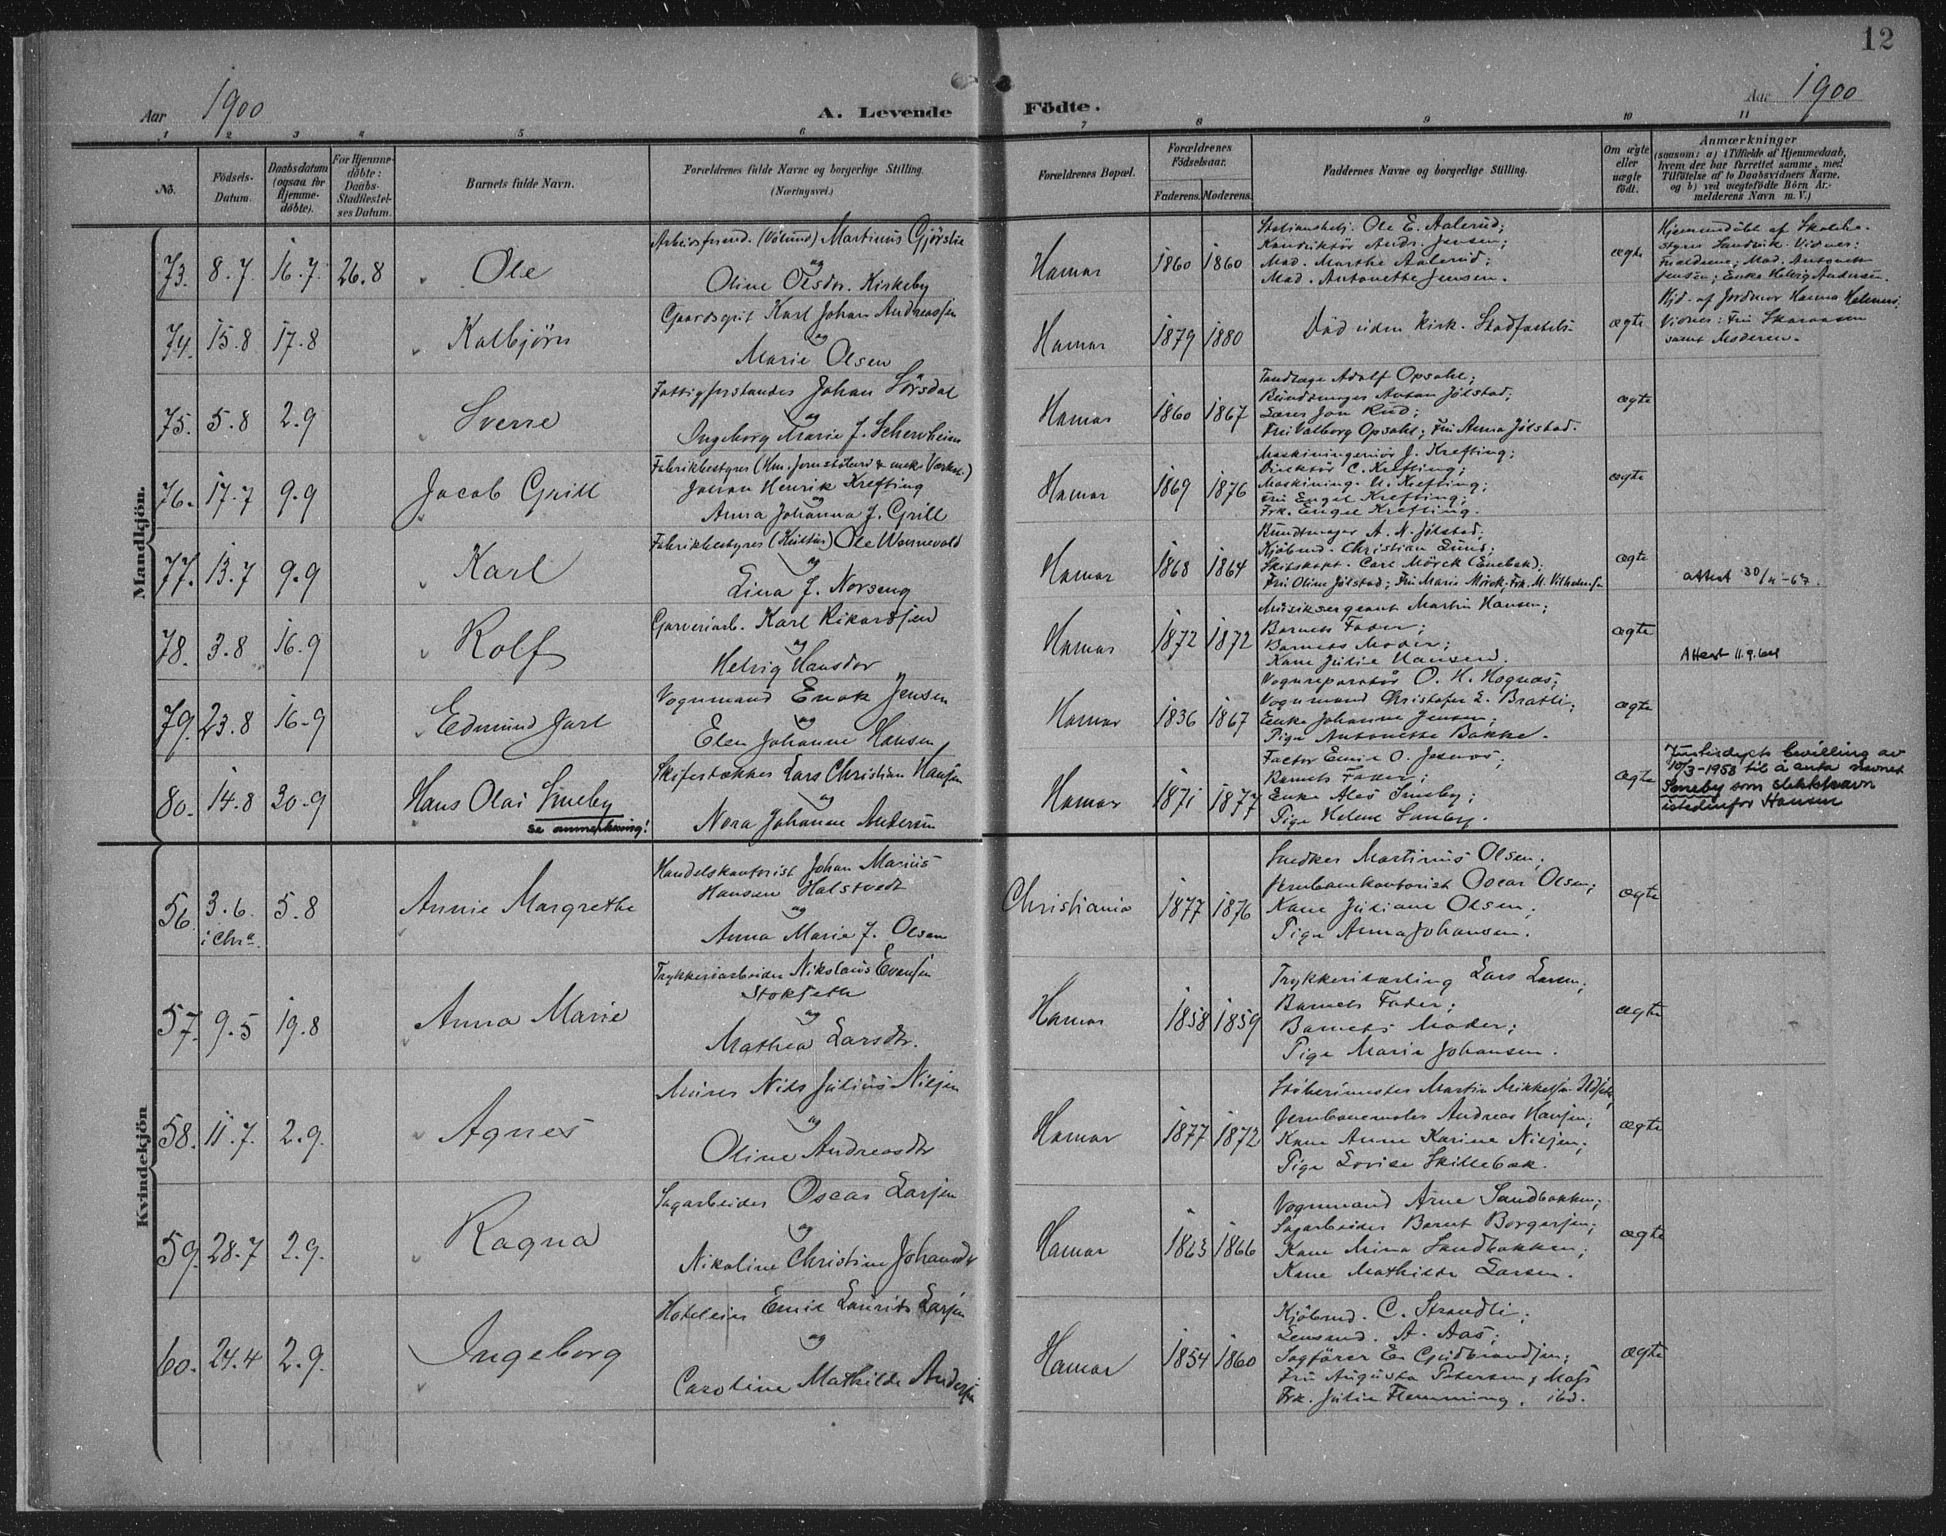 12
Aar 1900
A. Levende Födte.
Aar 1900
1 2 3 4 5 6 7 8 9 10 11
No.
Födsels-
Datum.
Daabsdatum
(ogsaa for
Hjemme-
døbte).
For Hjemme-
døbte:
Daabs-
Stadfæstel-
ses Datum.
Barnets fulde Navn.
Forældrenes fulde Navne og borgerlige Stilling.
(Næringsvei.)
Forældrenes Bopæl.
Forældrenes
Födselsaar.
Faderens. Moderens.
Faddernes Navne og borgerlige Stilling.
Om ægte
eller
uægte
født.
Anmærkninger
(saasom: a) i Tilfælde af Hjemmedaab,
hvem der har forrettet samme, med
Tilføielse af to Daabsvidners Navne,
og b) ved uægtefödte Börn An-
melderens Navn m. V.)
Mandkjön.
73. 8.7 16.7 26.8 Ole
Martinus Gjörslie
og
Oline Olsdr. Kirkeby
Hamar 1860 1860
Ole E. Aalerud;
Konduktör Andr. Jensen;
Mad. Marthe Aalerud;
Mad. Antonette Jensen.
ægte
Hjemmedöbt af Skolebe-
styrer Sandvik. Vidner:
Mad. Antonette
Jensen; Enke Helvig Andersen.
74. 15.8 17.8 Kolbjörn
Gaardsgut Karl Johan Andreassen
og
Marie Olsen
Hamar 1879 1880
Död uden Kirk. Stadfæstels-
ægte
Hjd. af Jordmor Hanna
Vidner: Fru
samt Moderen.
75. 5.8 2.9 Sverre
Fattigforstander Johan Sörsdal
og
Ingeborg Marie J.
Hamar 1860 1867
Tandlæge Adolf Opsahl;
Bundtmager Anton Jölstad;
Lærer Jon Rud;
Fru Valborg Opsahl; Fru Anna Jölstad.
ægte
76. 17.7 9.9 Jacob Grill
Fabrikbestyrer (Hm. Jernstöberi & mek. Værkst.)
Johan Henrik Krefting
og
Anna Johanna J. Grill
Hamar 1869 1876
Maskiningeniör J. Krefting;
Direktör C. Krefting;
Maskining. U. Krefting;
Fru Engel Krefting;
Frk. Engel Krefting.
ægte
77. 13.7 9.9 Karl
Fabrikbestyrer Ole Wannevold
og
Lina J. Norseng
Hamar 1868 1864
Bundtmager A. N. Jölstad;
Kjöbmd. Christian Lund;
Skibskapt. Carl Mörck (Enebak);
Fru Oline Jölstad; Fru Maria Mörck; Frk. M.
ægte
attest
78. 3.8 16.9 Rolf
Garveriarb. Karl Rikardsen
og
Helvig Hansdr
Hamar 1872 1872
Musiksergeant Martin Hansen;
Barnets Fader;
Barnets Moder;
Kone Julie Hansen.
ægte
Attest 11.9.
79. 23.8 16.9 Edmund Jarl
Vognmand Enok Jensen
og
Elen Johanne Hansen
Hamar 1836 1867
Vognreparatör O. H. Hognæs;
Vognmand Christofer E. Bratli;
Enke Johanne Jensen;
Pige Antonette Bakke.
ægte
80. 14.8 30.9 Hans Olai Smeby
se anmerkning!
Lars Christian Hansen
og
Nora Johanne Andersen
Hamar 1871 1877
Factor Emil O.
Barnets Fader;
Enke Smeby;
Pige Helene Smeby.
ægte
Justisdepts bevilling av
10/3-1958 til å anta navnet
Smeby som slektsnavn
istedenfor Hansen
Kvindekjön
56. 3.6.
i Chra.
5.8 Annie Margrethe
Handelskontorist Johan Marius
Hansen Holstvedt
og
Anna Marie J. Olsen
Christiania 1877 1876
Snedker Martinius Olsen;
Jernbanekontorist Oscar Olsen;
Kone Juliane Olsen;
Pige Anna Johansen.
ægte
57. 9.5 19.8 Anna Marie
Trykkeriarbeider Nikolaus Evensen
Stokseth
og
Mathea Larsdr.
Hamar 1858 1859
Trykkerilærling Lars Larsen;
Barnets Fader;
Barnets Moder;
Pige Marie Johansen.
ægte
58. 11.7. 2.9. Agnes
Murer Nils Julius Nilsen
og
Oline Andreasdr
Hamar 1877 1872
Stöberimester Martin Mikkelsen
Andreas Hansen;
Kone Anne Karine Nilsen;
Pige Lovise Skillebæk.
ægte
59. 28.7 2.9. Ragna
Sagarbeider Oscar Larsen
og
Nikoline Christine Johansdr
Hamar 1863 1866
Vognmand Arne Sandbakken;
Sagarbeider Bernt Borgersen;
Kone Mina Sandbakken;
Kone Mathilde Larsen.
ægte
60. 24.4 2.9. Ingeborg
Hoteleier Emil Laurits Larsen
og
Caroline Mathilde Andersen
Hamar 1854 1860
Kjöbmd. C. Strandli;
Lensmd. A. Aas;
Sagförer E. Gudbrandsen;
Fru Augusta Petersen, Moss
Frk. Julie Flemming, ibd.
ægte